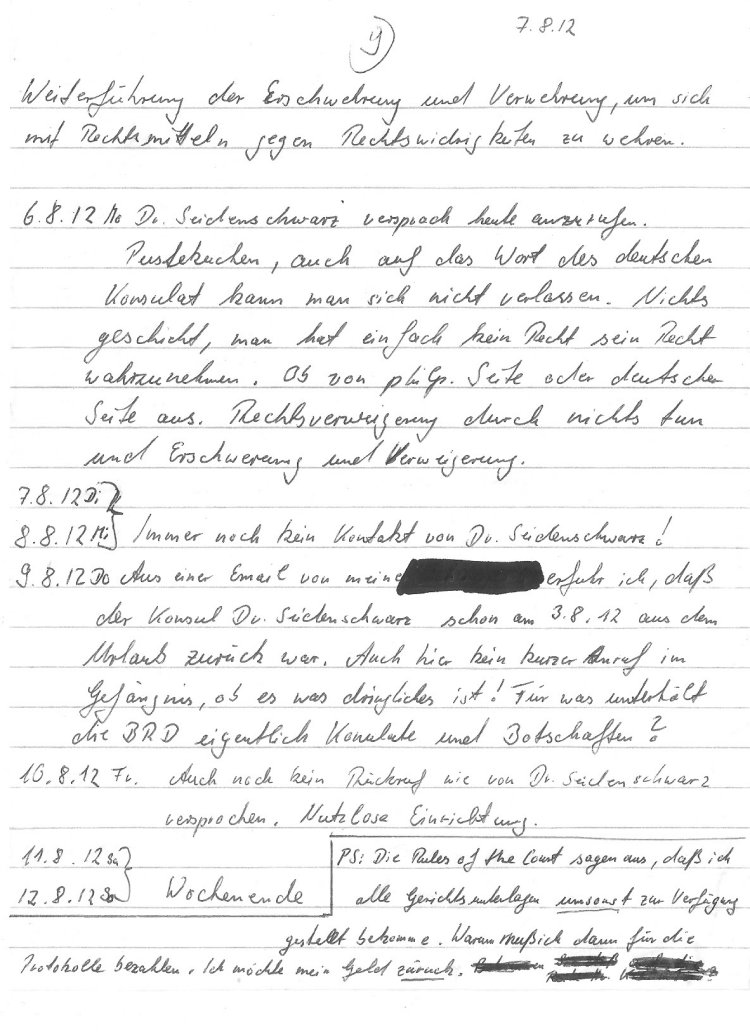 7.8.12
9
Weiterführung der Erschwehrung und Verwehrung, um sich
mit Rechtsmitteln gegen Rechtswidrigkeiten zu wehren.
6.8.12 Mo Dr. Seidenschwarz versprach heute anzurufen.
Pustekuchen, auch auf das Wort des deutschen
Konsulat kann man sich nicht verlassen. Nichts
geschicht, man hat einfach kein Recht sein Recht
wahrzunehmen. Ob von philp. Seite oder deutscher
Seite aus. Rechtsverweigerung durch nichts tun
und Erschwerung und Verweigerung.
7.8.12 Di
8.8.12 Mi Immer noch kein Kontakt von Dr. Seidenschwarz!
9.8.12 Do Aus einer Email von meine erfuhr ich, daß
der Konsul Dr. Seidenschwarz schon am 3.8.12 aus dem
Urlaub zurück war. Auch hier kein kurzer Anruf im
Gefängnis, ob es was dringliches ist! Für was unterhält
die BRD eigentlich Konsulate und Botschaften?
10.8.12 Fr. Auch noch kein Rückruf wie von Dr. Seidenschwarz
versprochen. Nutzlose Einrichtung.
11.8.12 Sa
12.8.12 So Wochenende
PS: Die Rules of the Court sagen aus, daß ich
alle Gerichtsunterlagen umsonst zur Verfügung
gestellt bekomme. Warum muß ich dann für die
Protokolle bezahlen. Ich möchte mein Geld zurück.